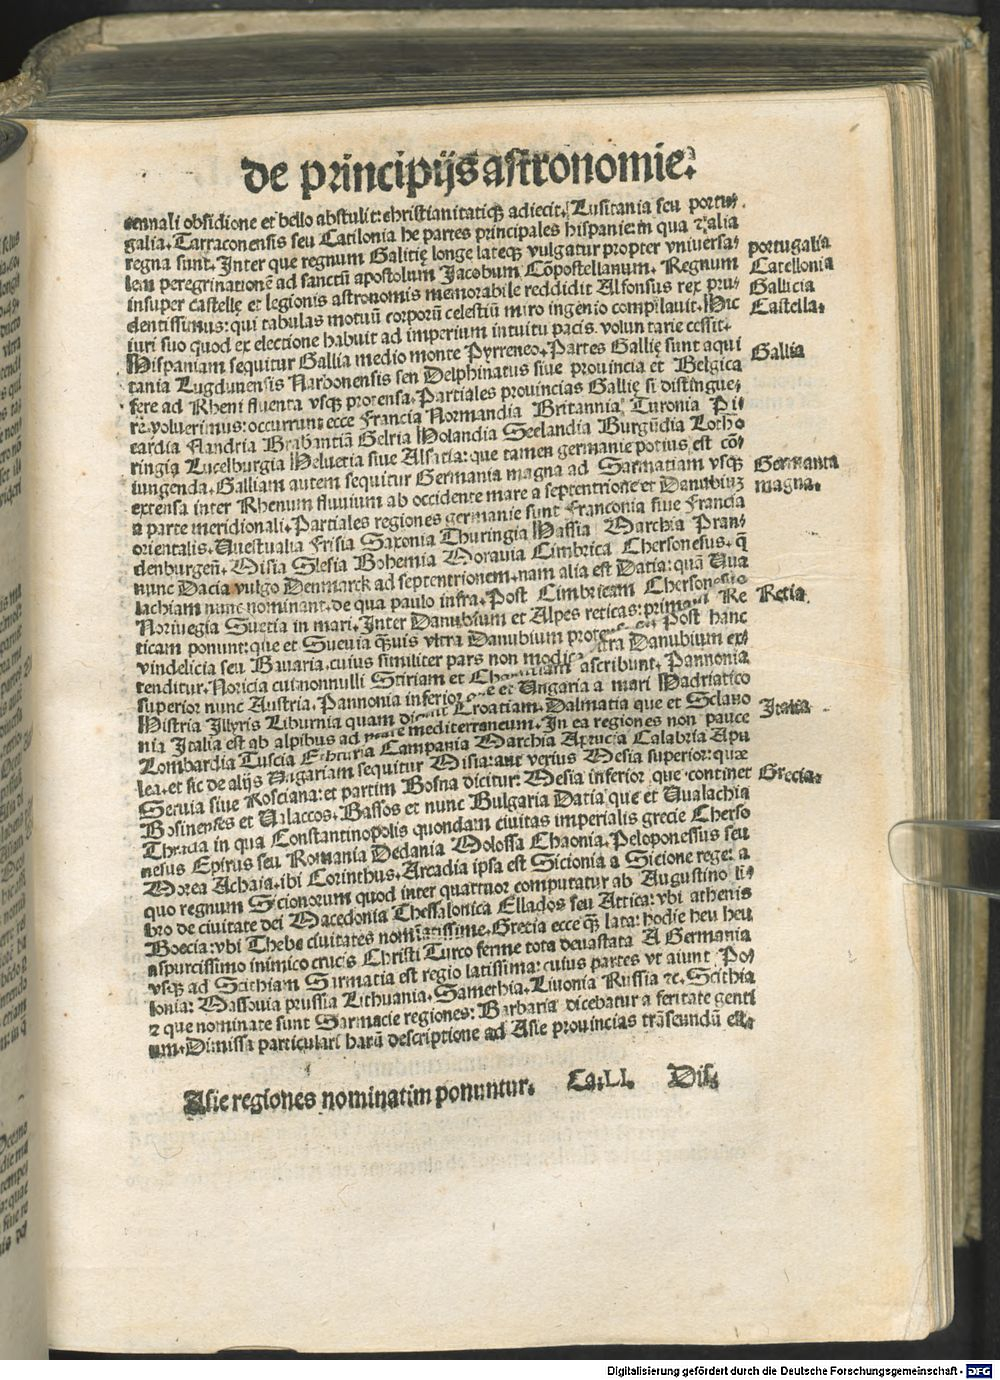 de principijs astronomie.
cennali obsidione et bello abstulit: christianitatiqꝫ adiecit. Lusitania seu portu⸗
galia. Tarraconensis seu Catilonia he partes principales hispanie: in qua ⁊ alia
regna sunt. Inter que regnum Galitię longe lateqꝫ vulgatur propter vniuersa⸗
lem peregrinationē ad sanctū apostolum Jacobum Cōpostellanum. Regnum
insuper castellę et legionis astronomis memorabile reddidit Alfonsus rex pru⸗
dentissimus: qui tabulas motuū corporū celestiū miro ingenio compilauit. Hic
iuri suo quod ex electione habuit ad imperium intuitu pacis voluntarie cessit.
Hispaniam sequitur Gallia medio monte Pyrreneo. Partes Gallię sunt aqui
tania Lugdunensis Narbonensis seu Delphinatus siue prouincia et Belgica
fere ad Rheni fluenta vsqꝫ protensa. Partiales prouincias Gallię si distingue⸗
re voluerimus: occurrunt ecce Francia Normandia Britannia Turonia Pi
cardia Flandria Brabantia Gelria Holandia Seelandia Burgūdia Lotho
ringia Lucelburgia Heluetia siue Alsatia: que tamen germanie potius est cō⸗
iungenda. Galliam autem sequitur Germania magna ad Sarmatiam vsqꝫ
extensa inter Rhenum fluuium ab occidente mare a septentrione et Danubiuꝫ
a parte meridionali. Partiales regiones germanie sunt Franconia siue Francia
orientalis. Vuestualia Frisia Saxonia Thuringia Hassia Marchia Pran⸗
denburgen̄. Misia Slesia Bohemia Morauia Cimbrica Chersonesus. q̄
nunc Dacia vulgo Denmarck ad septentrionem. nam alia est Datia: quā Vua
lachiam nunc nominant. de qua paulo infra. Post Cimbricam
Noriuegia Suetia in mari. Inter Danubium et Alpes reticas: Re
ticam ponunt: que et Sueuia quis vltra Danubium Post hanc
vindelicia seu Bauaria. cuius similiter pars non Danubium ex⸗
tenditur. Noricia cui nonnulli Stiriam et ascribunt. Pannonia
superior nunc Austria. Pannonia inferior que et Vngaria a mari Hadriatico
Histria Illyris Liburnia quam Croatiam. Dalmatia que et Sclauo
nia Italia est ab alpibus ad mare mediterraneum. In ea regiones non pauce
Lombardia Tuscia Campania Marchia Aprucia Calabria Apu
lea. et sic de alijs Vngariam sequitur Misia: aut verius Mesia superior: quæ
Seruia siue Rosciana: et partim Bosna dicitur: Mesia inferior que continet
Bosinenses et Valaccos. Bassos et nunc Bulgaria Datia que et Vualachia
Thracia in qua Constantinopolis quondam ciuitas imperialis grecie Cherso
nesus Epirus seu Romania Dedania Molossa Chaonia. Peloponessus seu
Morea Achaia. ibi Corinthus. Arcadia ipsa est Sicionia a Sicione rege: a
quo regnum Scionorum quod inter quattuor computatur ab Augustino li⸗
bro de ciuitate dei Macedonia Thessalonica Ellados seu Attica: vbi athenis
Boecia: vbi Thebe ciuitates nominatissime. Grecia ecce qꝫ lata: hodie heu heu
a spurcissimo inimico crucis Christi Turco ferme tota deuastata A Germania
vsqꝫ ad Scithiam Sirmatia est regio latissima: cuius partes vt aiunt Po⸗
lonia: Massouia prussia Lithuania. Samethia. Liuonia Russia ⁊c. Scithia
⁊ que nominate sunt Sarmacie regiones: Barbaria dicebatur a feritate genti
um. Dimissa particulari harū descriptione ad Asie prouincias trāseundū est.
portugalia
Catellonia
Gallicia
Castella.
Gallia
Germania
magna.
Retia.
Italia
Grecia.
Asie regiones nominatim ponuntur. Ca. LI. Dis.
Digitalisierung gefördert durch die Deutsche Forschungsgemeinschaft - DFG